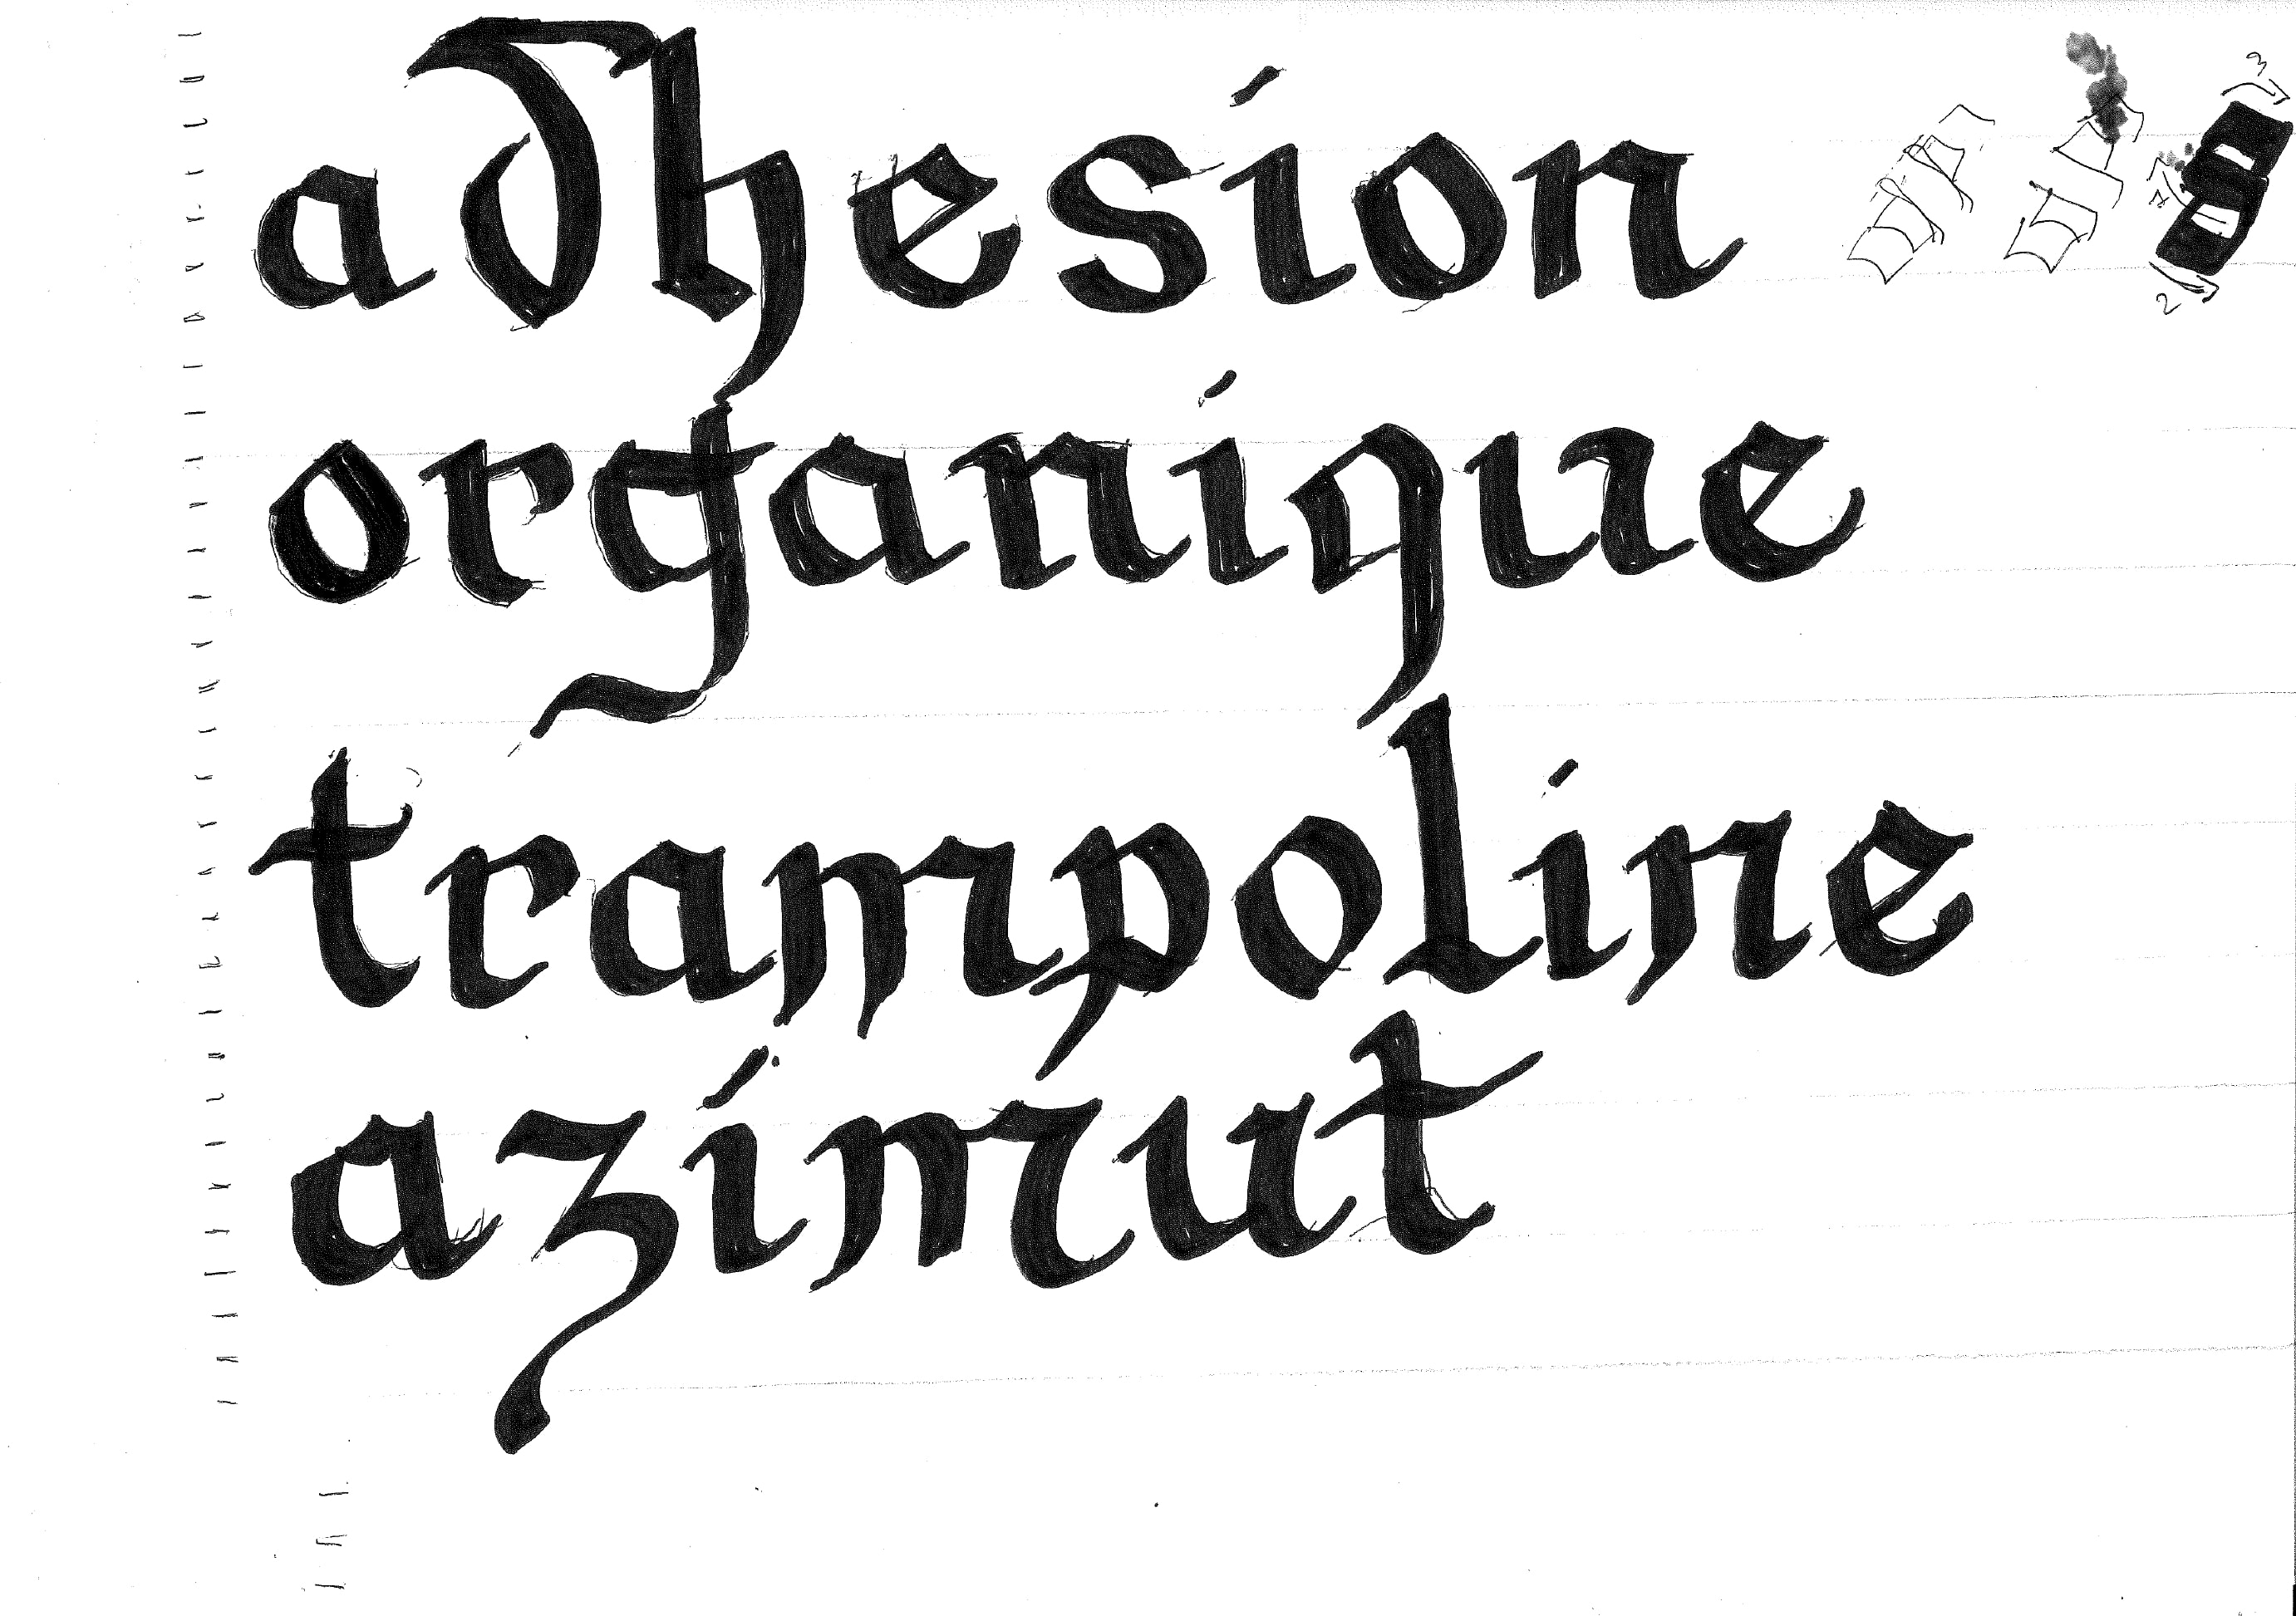 adhesion
organique
trampoline
azimut
3
2